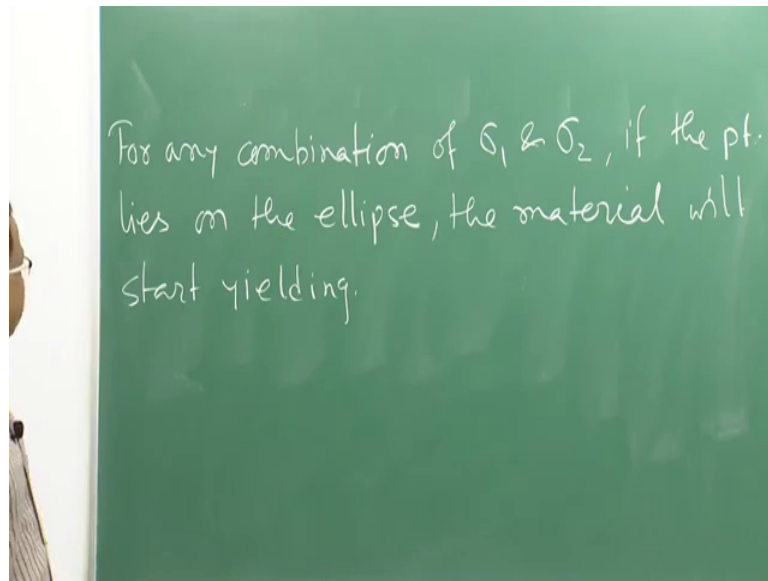 For any combination of σ₁ & σ₂, if the pt.
lies on the ellipse, the material will
start yielding.